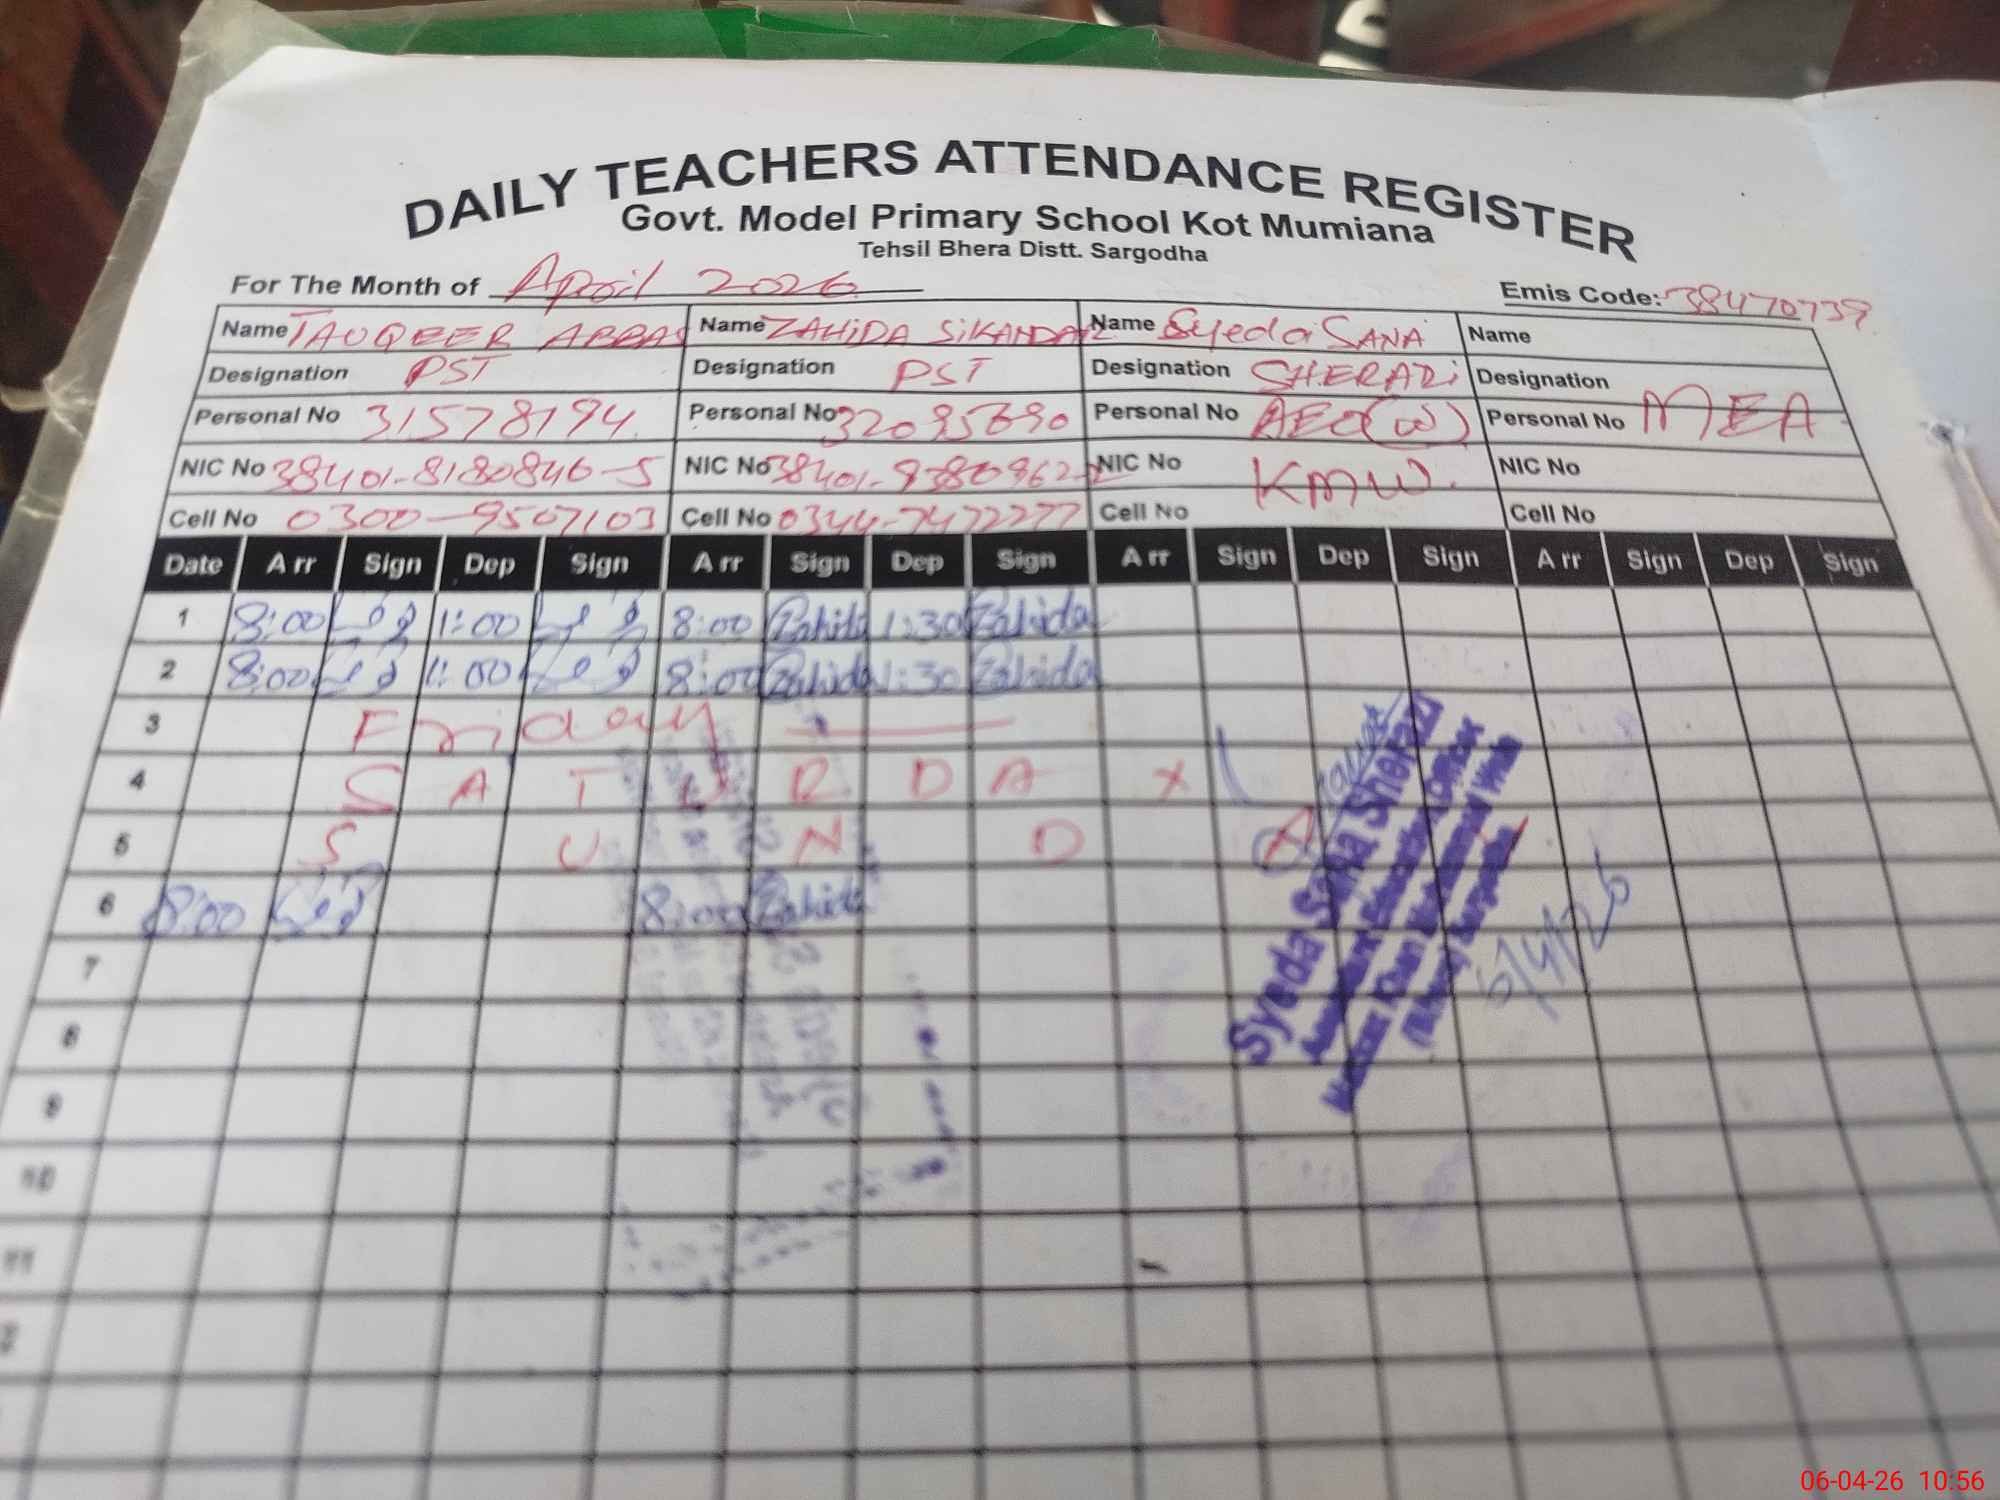 DAILY TEACHERS ATTENDANCE REGISTER
Govt. Model Primary School Kot Mumiana
Tehsil Bhera Distt. Sargodha
For The Month of April 2026 Emis Code: 38470739
Name TAUQEER ABBAS Name ZAHIDA SIKANDAR Name Syeda SANA Name
Designation PST Designation PST Designation SHERAZI Designation
Personal No 31578194 Personal No Personal No AEO(W) Personal No MEA
NIC No 38401-8180846-5 NIC No NIC No KMW. NIC No
Cell No 0300-9507103 Cell No 0344-7472277 Cell No Cell No
Date Arr Sign Dep Sign Arr Sign Dep Sign Arr Sign Dep Sign Arr Sign Dep Sign
1 8:00 1:00 8:00 Zahida 1:30 Zahida
2 8:00 1:00 8:00 Zahida 1:30 Zahida
3 Friday
4 SATURDAY
5 SUNDAY
6 8:00 8:00 Zahida
7
8
9
10
11
Syeda Sana Sherazi
Assistant Education Officer
Markaz Khan Muhammad Wala
(Bhera) Sargodha
6/4/26
06-04-26 10:56